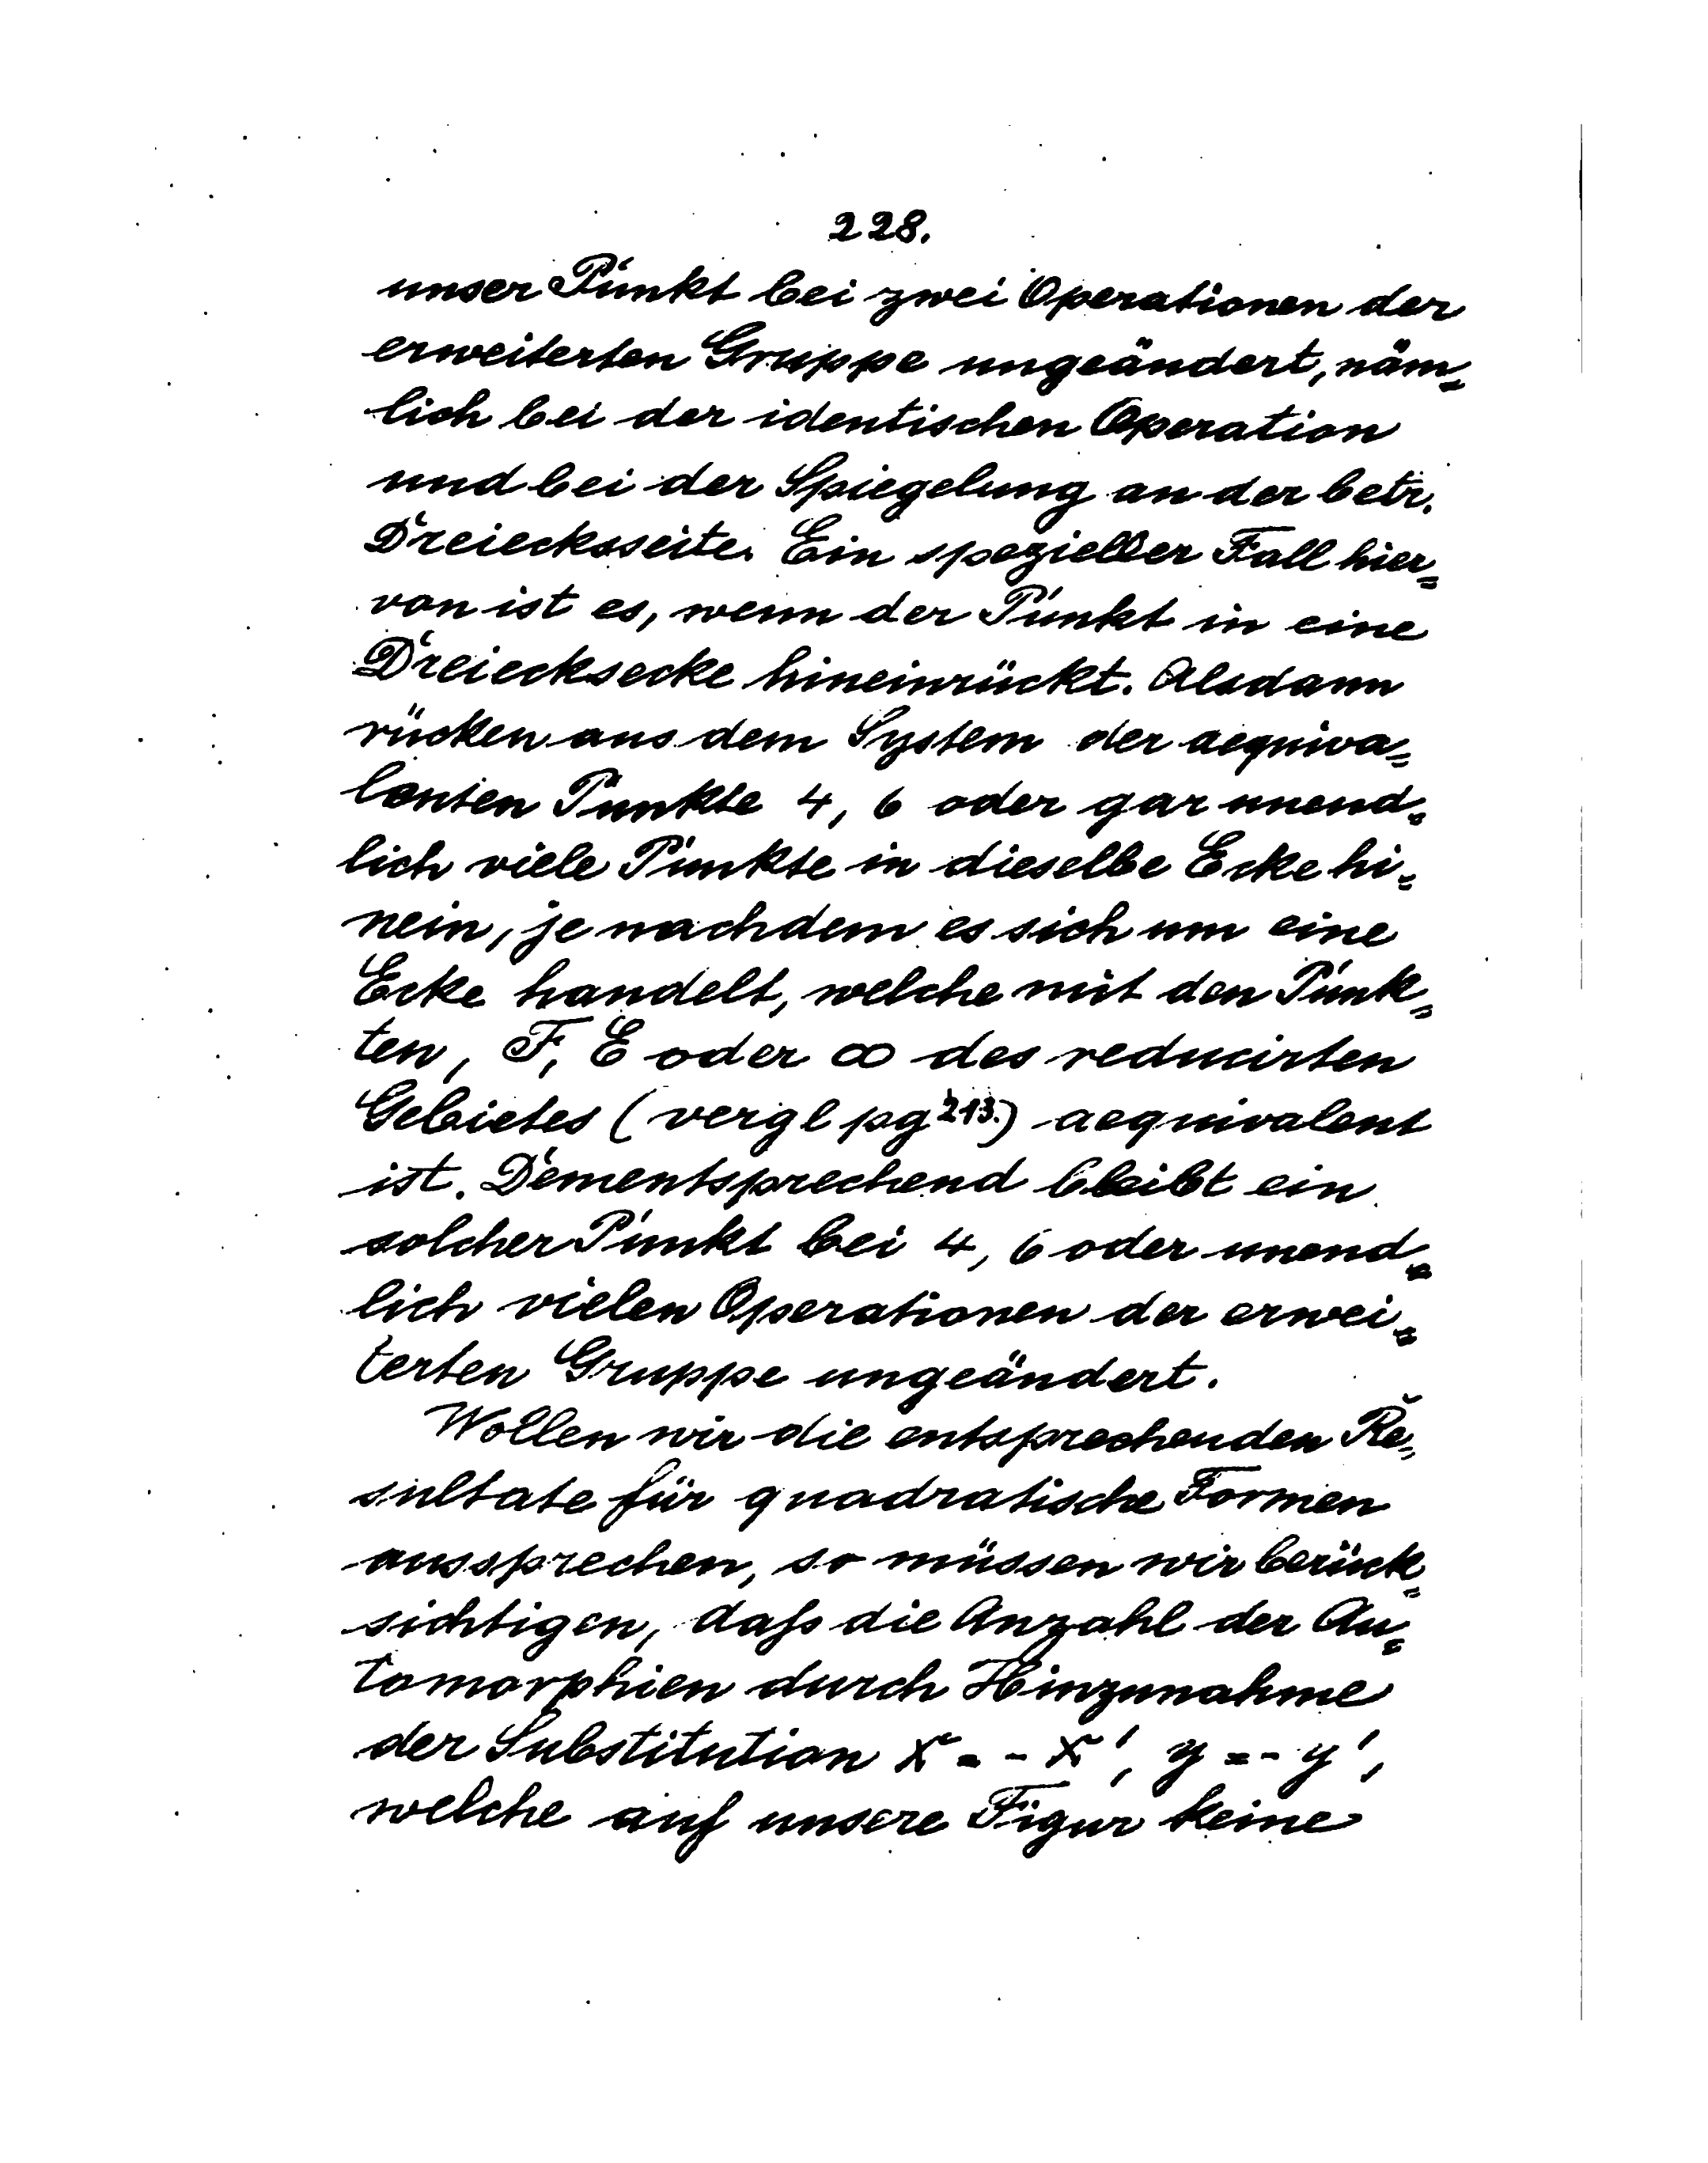 228.
unser Punkt bei zwei Operationen der
erweiterten Gruppe ungeändert, näm=
lich bei der identischen Operation
und bei der Spiegelung an der betr.
Dreiecksseite. Ein spezieller Fall hier=
von ist es, wenn der Punkt in eine
Dreiecksecke hineinrückt. Alsdann
rücken aus dem System der aequiva=
lenten Punkte 4, 6 oder gar unend=
lich viele Punkte in dieselbe Ecke hi=
nein, je nachdem es sich um eine
Ecke handelt, welche mit den Punk=
ten, F, E oder ∞ des reducirten
Gebietes (vergl pg 213.) aequivalent
ist. Dementsprechend bleibt ein
solcher Punkt bei 4, 6 oder unend=
lich vielen Operationen der erwei=
terten Gruppe ungeändert.
Wollen wir die entsprechenden Re=
sultate für quadratische Formen
aussprechen, so müssen wir berück=
sichtigen, daſs die Anzahl der Au=
tomorphien durch Hinzunahme
der Substitution x = - x', y = - y',
welche auf unsere Figur keine